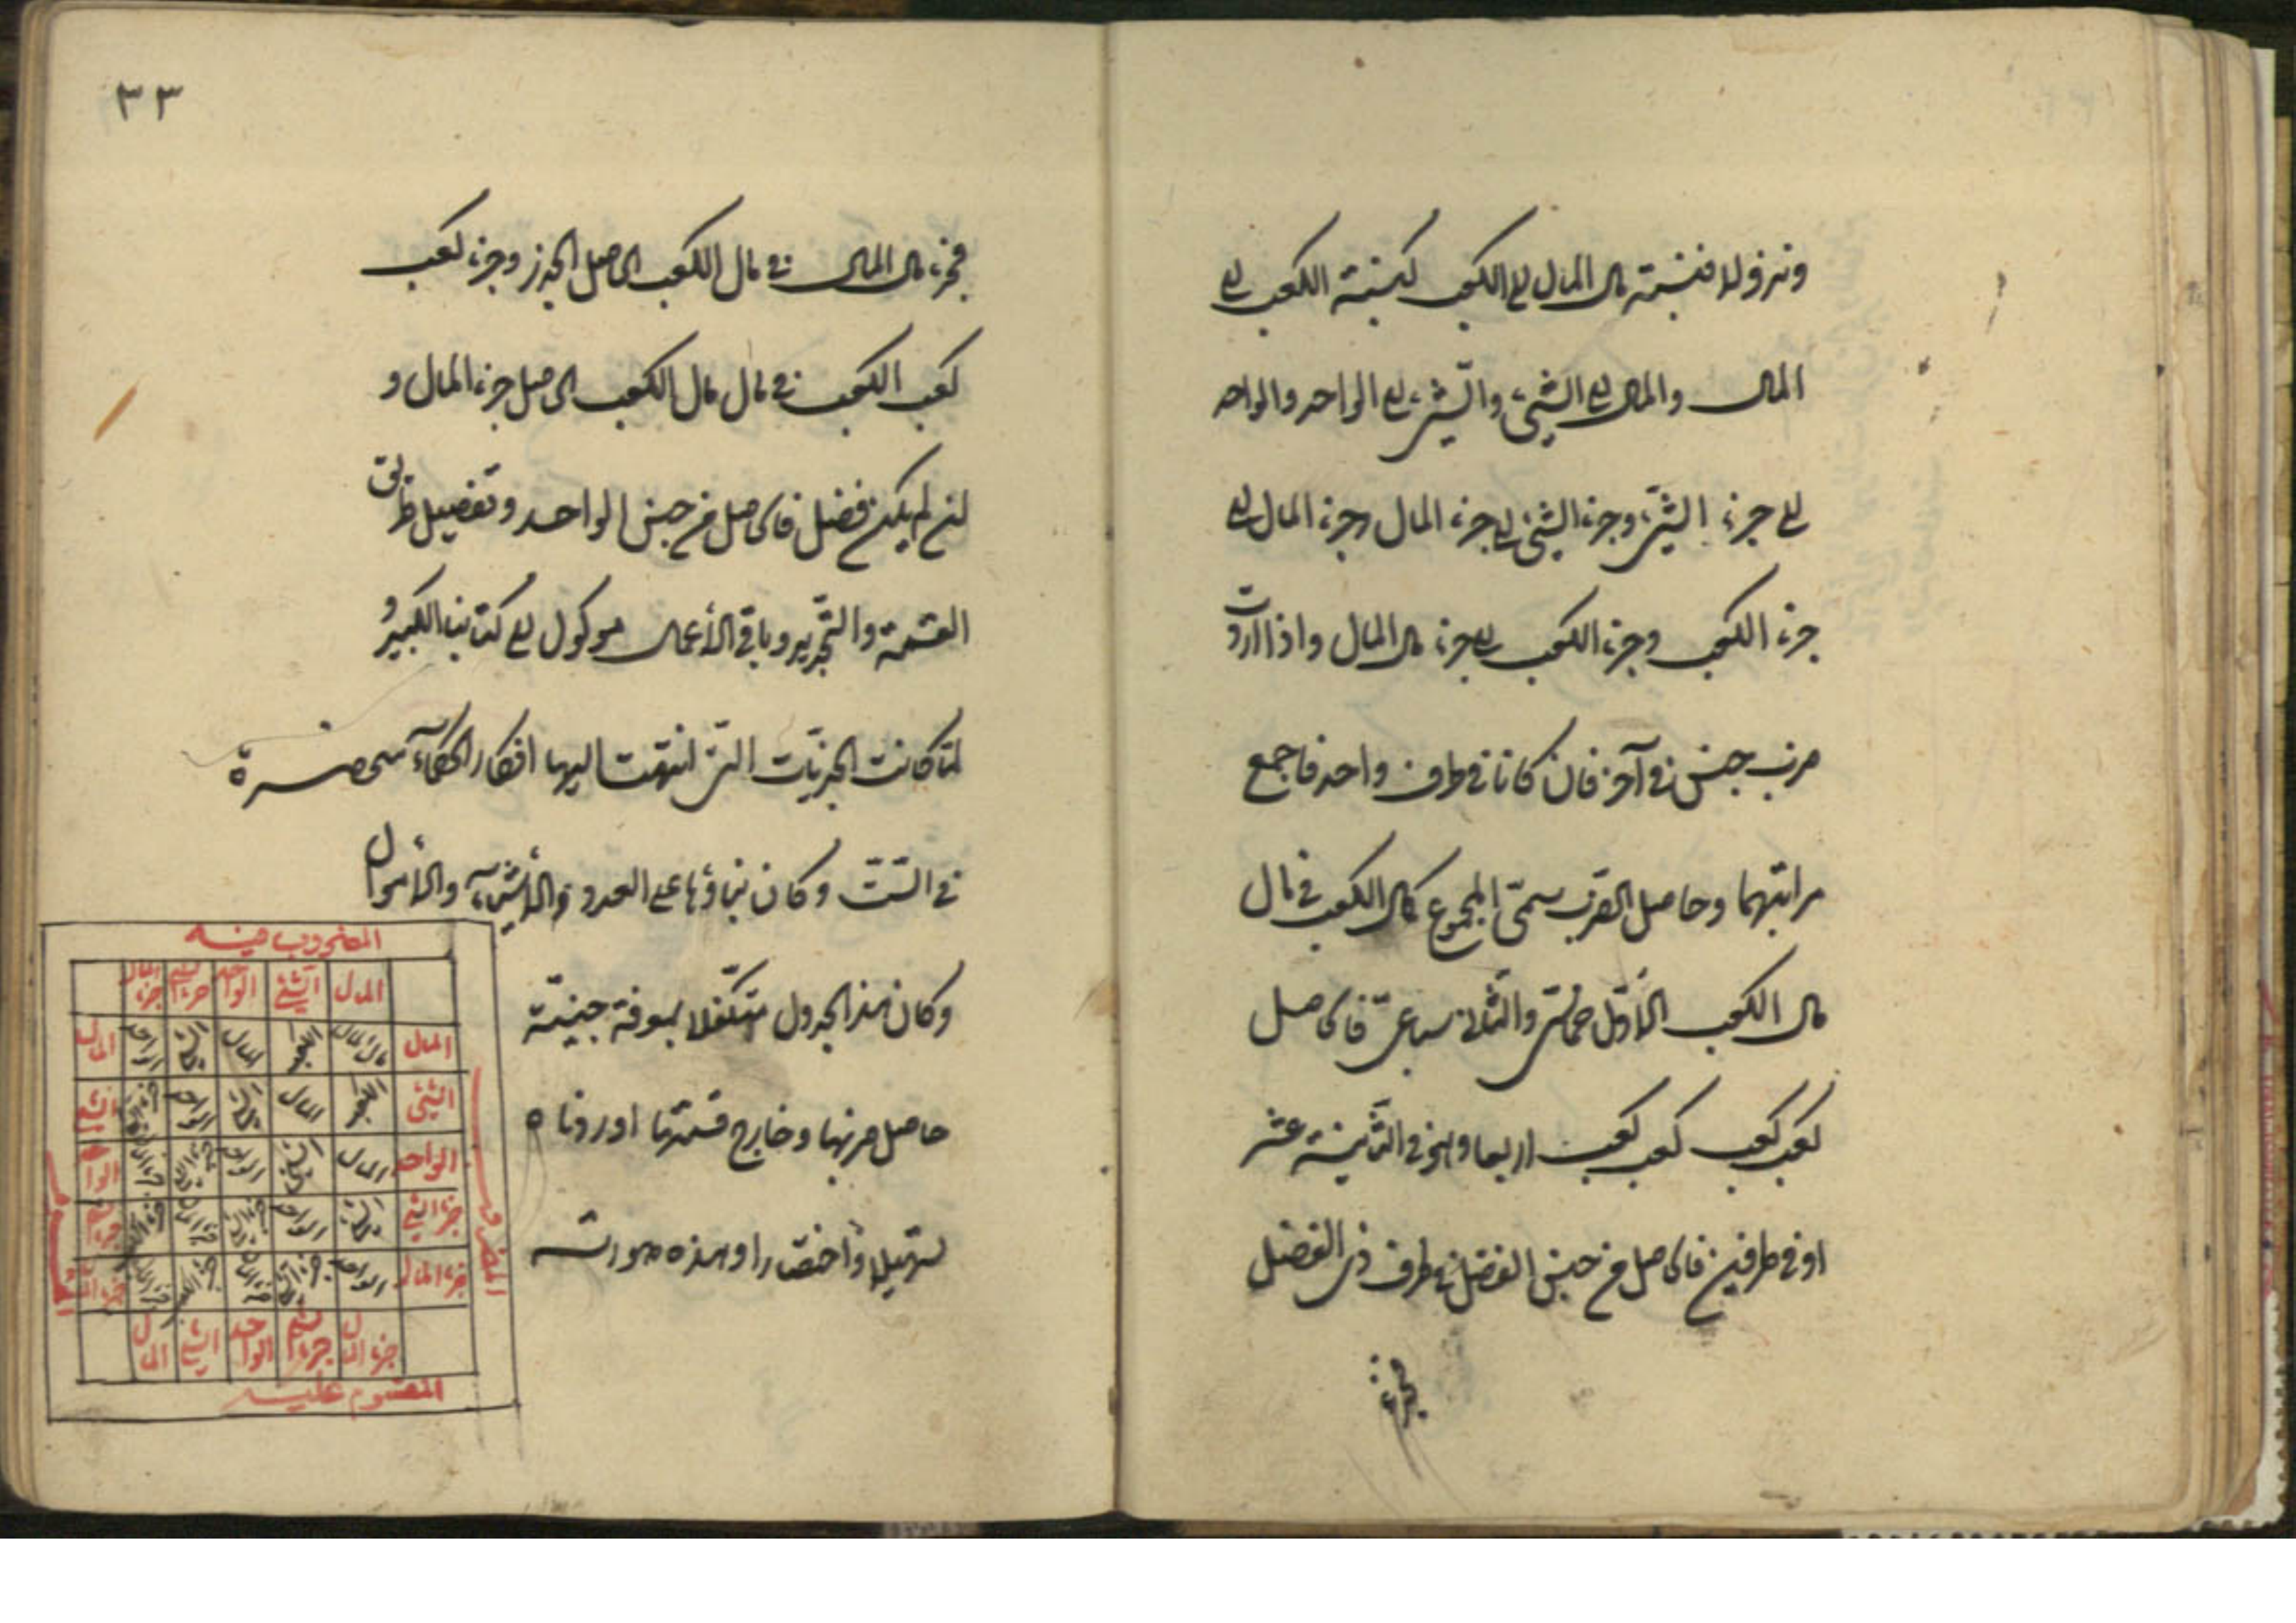 ونزولا فنسبة مال المال الى الكعب كنسبة الكعب الى
المال والمال الى الشئ والشئ الى الواحد والواحد
الى جزء الشئ وجزء الشئ الى جزء المال وجزء المال الى
جزء الكعب وجزء الكعب الى جزء مال المال واذا اردت
ضرب جنس في آخر فان كانا في طرف واحد فاجمع
مراتبهما وحاصل الضرب سمىّ المجموع كمال الكعب في مال
مال الكعب الأوّل خماسىّ والثانى سباعىّ فالحاصل
كعب كعب كعب كعب اربعا وهو في الثانية عشر
او في طرفين فالحاصل من جنس الفضل في طرف ذى الفضل
فجزء
٣٣
فجزء مال المال في مال الكعب الحاصل الجذر وجزء كعب
كعب الكعب في مال مال الكعب الحاصل جزء المال و
ان لم يكن فضل فالحاصل من جنس الواحد وتفصيل طرق
القسمة والتجذير وباقى الأعمال موكول الى كتابنا الكبير و
لمّا كانت الجبريّات التى انتهت اليها افكار الحكماء منحصرة
في السّتّ وكان بناؤها على العدد والأشياء والأموال
وكان هذا الجدول متكفّلا بمعرفة جنسيّة
حاصل ضربها وخارج قسمتها اوردناه
تسهيلا وأختصارا وهذه صورته
المضروب فيه
المال الشئ الواحد جزء الشئ جزء المال
المال مال المال الكعب المال الشئ الواحد المال
الشئ الكعب المال الشئ الواحد جزء الشئ الشئ
الواحد المال الشئ الواحد جزء الشئ جزء المال الواحد
جزء الشئ الشئ الواحد جزء الشئ جزء المال جزء الكعب جزء الشئ
جزء المال الواحد جزء الشئ جزء المال جزء الكعب جزء مال المال جزء المال
جزء المال جزء الشئ الواحد الشئ المال
المقسوم عليه
المضروب
المقسوم